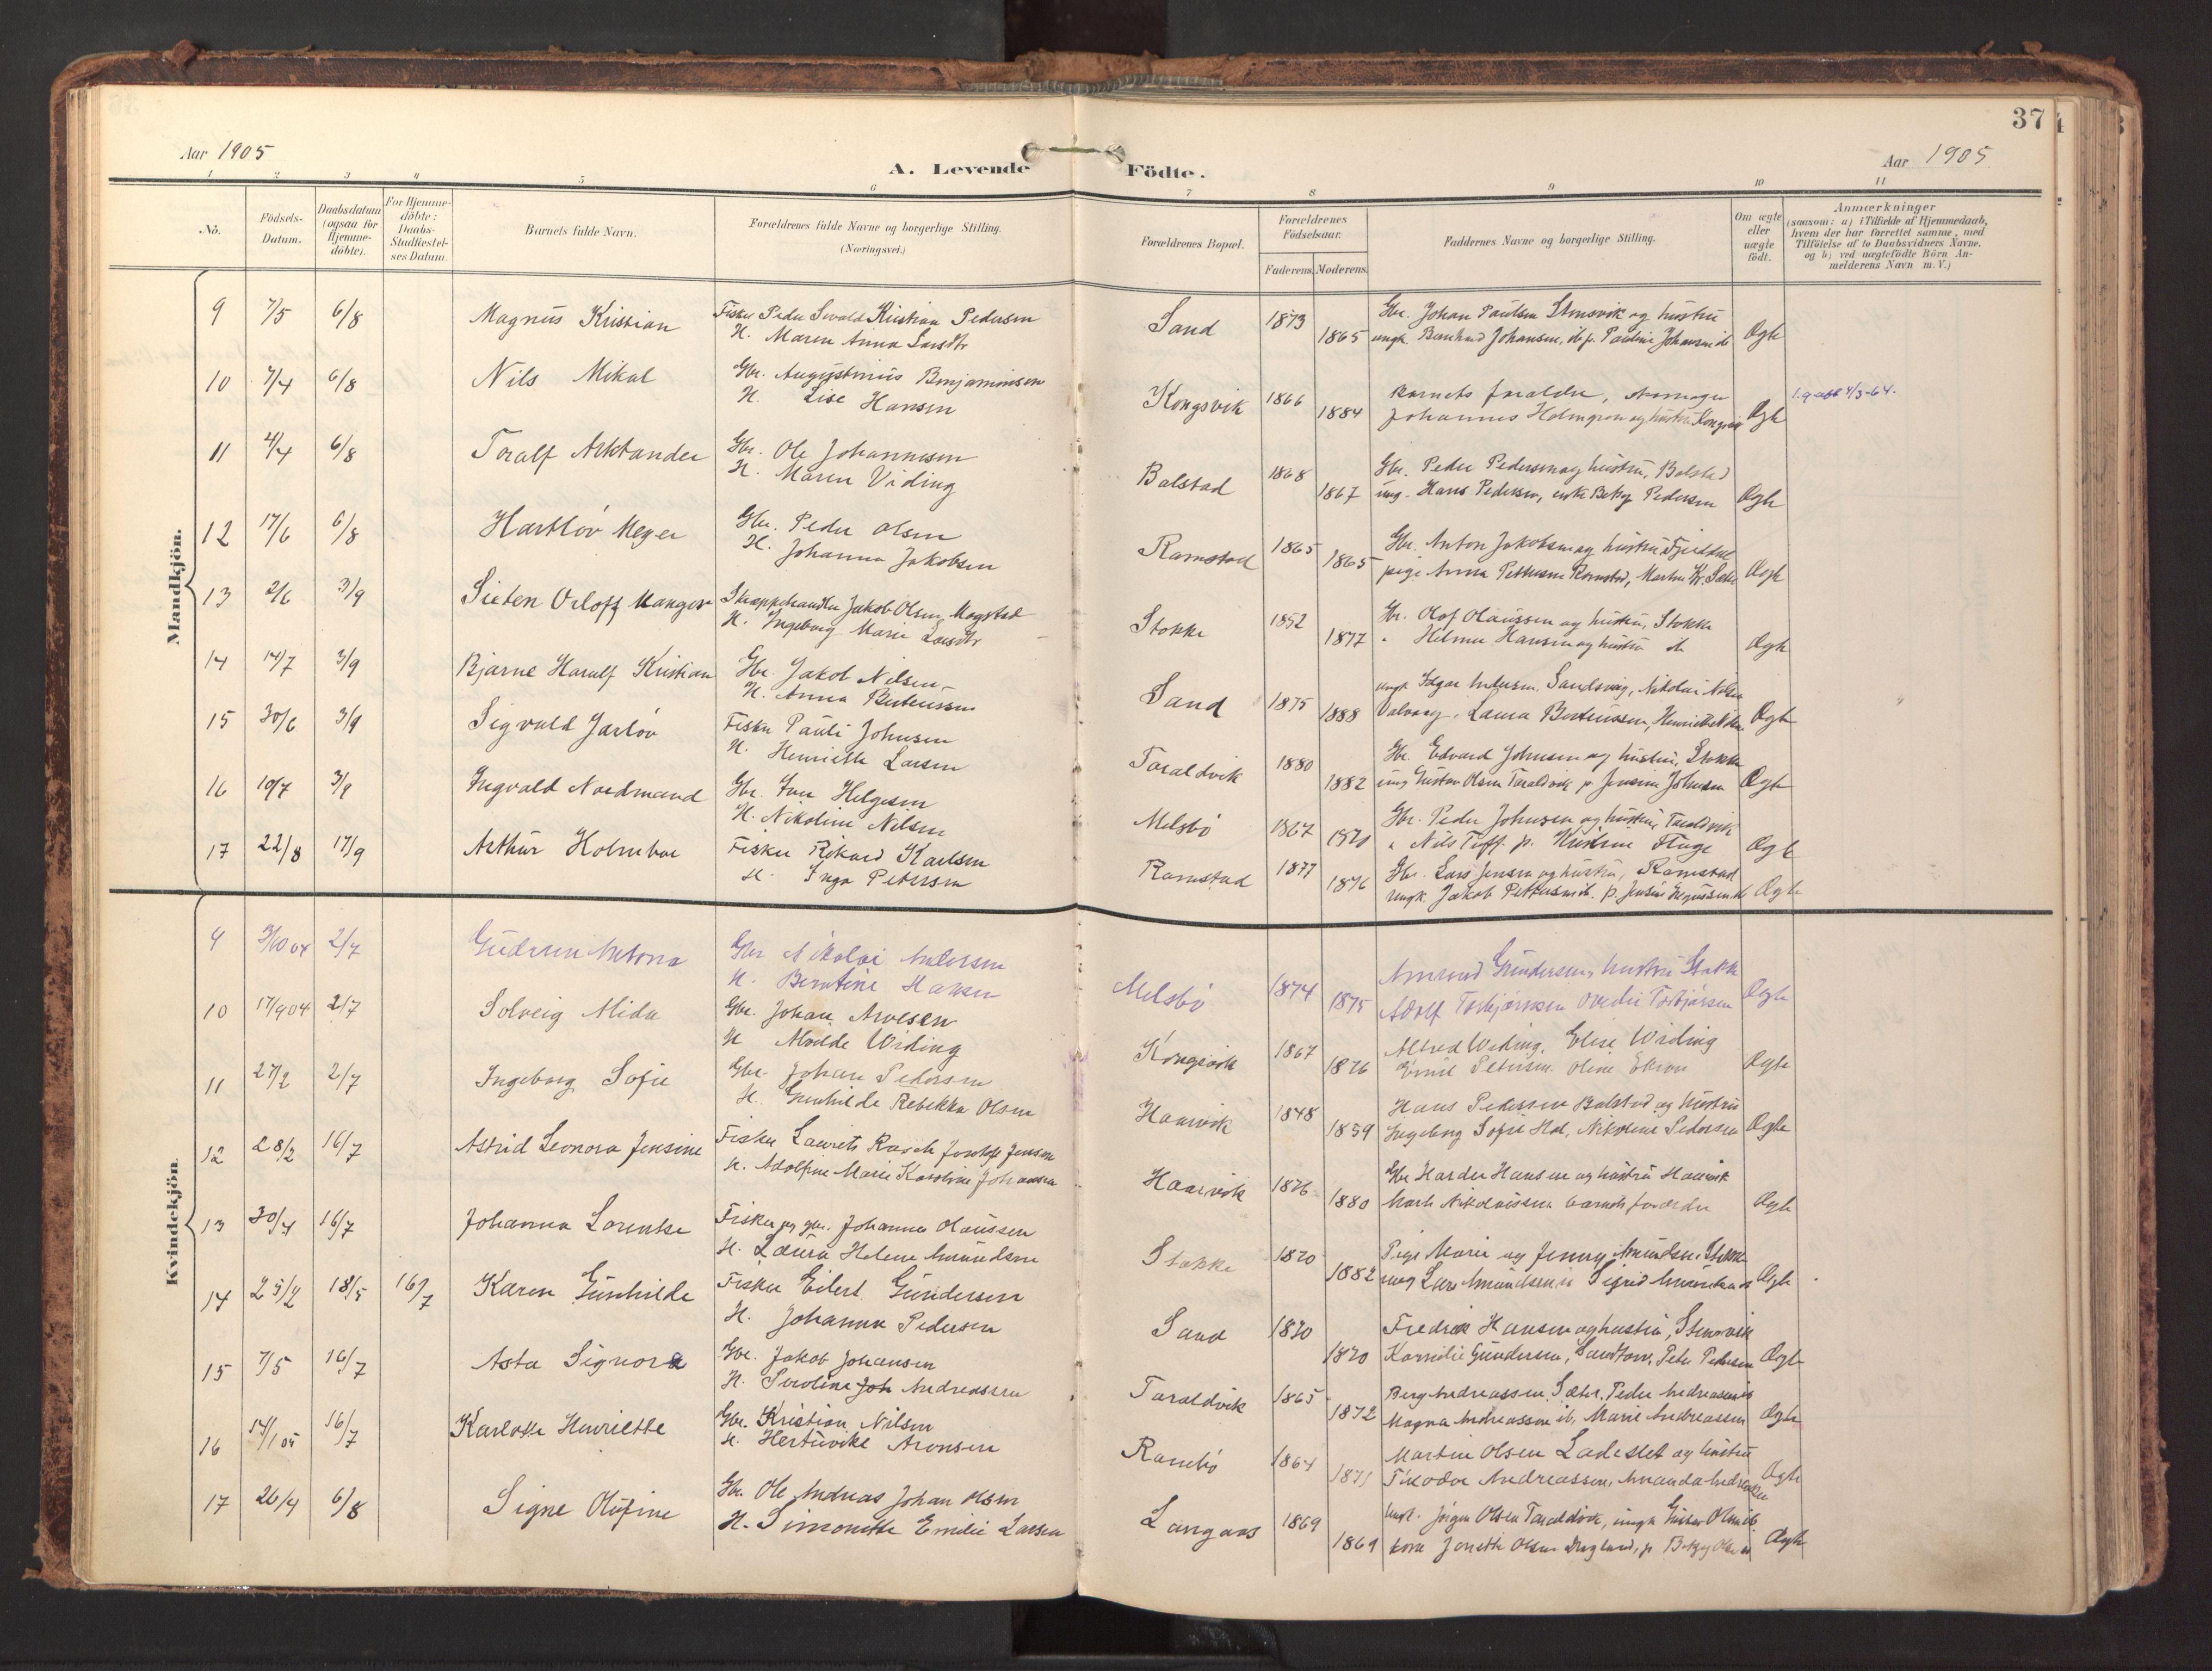 37
Aar 1905
A. Levende Födte.
Aar 1905
1 2 3 4 5 6 7 8 9 10 11
No.
Födsels-Datum.
Daabsdatum (ogsaa for Hjemme-döbte).
For Hjemme-döbte: Daabs-Stadfæstel-ses Datum.
Barnets fulde Navn.
Forældrenes fulde Navne og borgerlige Stilling. (Næringsvei.)
Forældrenes Bopæl.
Forældrenes Födselsaar.
Faderens. Moderens.
Faddernes Navne og borgerlige Stilling.
Om ægte eller uægte födt.
Anmærkninger
(saasom: a) i Tilfælde af Hjemmedaab, hvem der har forrettet samme, med Tilföielse af to Daabsvidners Navne, og b) ved uægtefödte Börn An-melderens Navn m. V.)
Mandkjön.
9 7/5 6/8 Magnus Kristian Fisker Peder Sivald Kristian Pedersen Sand 1873 Gbr. Johan Paulsen Stensvik og hustru
H. Maren Anna Larsdtr 1865 ungk Bernhard Johansen, ib p. Pauline Johansen ib Ægte
10 7/4 6/8 Nils Mikal Gbr. Augustinius Benjaminsen Kongsvik 1866 barnets forældre, skomager
H. Lise Hansen 1884 Johannes Holmgren og hustru Kongsvik Ægte
11 4/4 6/8 Toralf Arktander Gbr. Ole Johannesen Balstad 1868 Gbr. Peder Pedersen og hustru, Balstad
H. Maren Viding 1867 ung. Hans Pedersen, enke Betzy Pedersen Ægte
12 17/6 6/8 Hartlöv Meyer Gbr. Peder Olsen Ramstad 1865 Gbr. Anton Jakobsen og hustru
H. Johanna Jakobsen 1865 pige Anna Pettersen Ramstad, Martin Kr. Sæter Ægte
13 2/6 3/9 Sieten Orloff Manger Skræppehandler Jakob Olsen Magstad Stokke 1852 Gbr. Olof Olaussen og hustru, Stokke
H. Ingeborg Marie Larsdtr 1877 " Hilmer Hansen og hustru do Ægte
14 14/7 3/9 Bjarne Haralf Kristian Gbr. Jakob Nilsen Sand 1875 ungk Edgar Andersen Sandsvåg, Nikolai Nilsen
H. Anna Berteussen 1888 Laura Berteussen, Henriette Ægte
15 30/6 3/9 Sigvald Jarlöv Fisker Pauli Johnsen Taraldvik 1880 Gbr. Edvard Johnsen og hustru, Stokke
H. Henriette Larsen 1882 ung Gustav Olsen Taraldvik p. Jensine Johnsen Ægte
16 10/7 3/9 Ingvald Nordmand Gbr. Iver Helgesen Melsbö 1867 Gbr. Peder Johnsen og hustru Taraldvik
H. Nikoline Nilsen 1870 " Nils Toff. p. Kristine Fluge Ægte
17 22/8 17/9 Arthur Holmboe Fisker Rikard Karlsen Ramstad 1877 Gbr. Lars Jensen og hustru, Ramstad
H. Inga Petersen 1876 ungk. Jakob Pettersen ib. p. Jensine Ægte
Kvindekjön.
9 3/10 04 2/7 Gudrun Antona Gbr Nikolai Andersen Melsbö 1874 Amund Gundersen, hustru Stokke
H. Berntine Hansen 1875 Adolf Torbjörnsen Ovedie Torbjörsen Ægte
10 17/9 04 2/7 Solveig Alida Gbr. Johan Arvesen Kongsvik 1867 Alfred Widing, Elise Widing
H Alvilde Widing 1876 Emil Petersen Oline Ekron Ægte
11 27/2 2/7 Ingeborg Sofie Gbr. Johan Pedersen Haarvik 1848 Hans Pedersen Balstad og hustru
H. Gunhilde Rebekka Olsen 1859 Ingeborg Sofie Hol, Nikoline Pedersen Ægte
12 28/2 16/7 Astrid Leonora Jensine Fisker Laurits Rasch Jentoft Jensen Haarvik 1876 Gbr Harder Hansen og hustru Haarvik
H. Adolfine Marie Karoline Johansen 1880 Nikolaisen barnets forældre Ægte
13 30/4 16/7 Johanna Lorentse Fisker og gbr. Johannes Olaussen Stokke 1870 Pige Marie og Jenny Amundsen Stokke
H. Laura Helene Amundsen 1882 ung Lars Amundsen ib Sigrid Amundsen do Ægte
14 25/2 18/5 16/7 Karen Gunhilde Fisker Eilert Gundersen Sand 1870 Fredrik Hansen og hustru, Stensvik
H. Johanna Pedersen 1870 Kornelie Gundersen, Sandtorv, Peter Pedersen Ægte
15 7/5 16/7 Asta Signora Gbr. Jakob Johansen Taraldvik 1865 Berg Andreassen Sæter, Peder Andreassen ib
H. Severine Joh Andreassen 1872 Magna Andreassen ib, Marie Andreassen Ægte
16 14/1 05 16/7 Karlotte Henriette Gbr. Kristian Nilsen Rambö 1864 Martin Olsen Ladeslet og hustru
H. Hertuvike Aronsen 1871 Teodor Andreassen, Amanda Andreassen Ægte
17 26/4 6/8 Signe Olufine Gbr. Ole Andreas Johan Olsen Langaas 1869 Ungk. Jörgen Olsen Taraldvik, ungk Gustav Olsen ib
H. Simonette Emilie Larsen 1869 kone Jenette Olsen, p Betzy Olsen Ægte